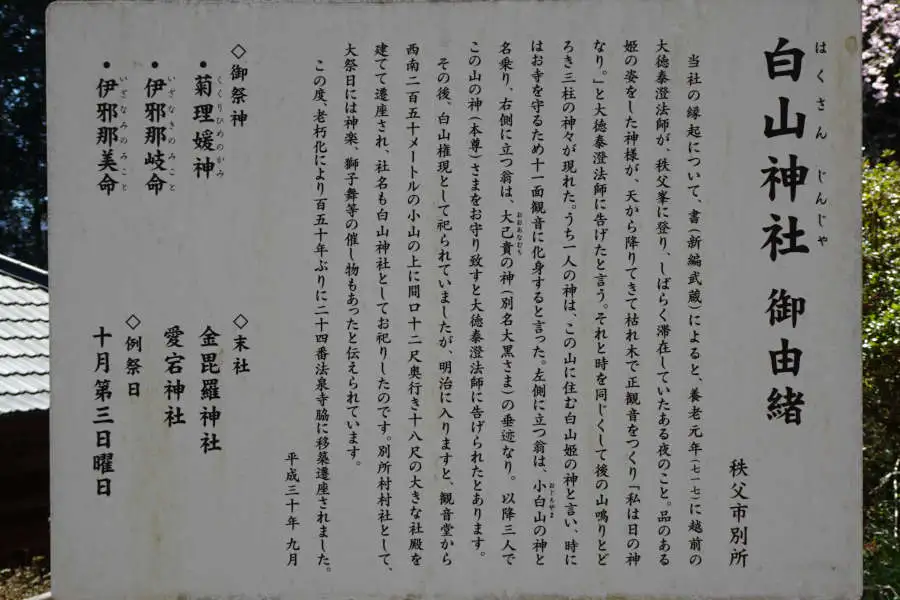 はくさん じんじゃ
白山神社 御由緒
秩父市別所
当社の縁起について、書(新編武蔵)によると、養老元年(七一七)に越前の
大徳泰澄法師が、秩父峯に登り、しばらく滞在していたある夜のこと。品のある
姫の姿をした神様が、天から降りてきて枯れ木で正観音をつくり「私は日の神
なり。」と大徳泰澄法師に告げたと言う。それと時を同じくして後の山鳴りとど
ろき三柱の神々が現れた。うち一人の神は、この山に住む白山姫の神と言い、時に
はお寺を守るため十一面観音に化身すると言った。左側に立つ翁は、小白山の神と
名乗り、右側に立つ翁は、大己貴の神(別名大黒さま)の垂迹なり。以降三人で
この山の神(本尊)さまをお守り致すと大徳泰澄法師に告げられたとあります。
その後、白山権現として祀られていましたが、明治に入りますと、観音堂から
西南二百五十メートルの小山の上に間口十二尺奥行き十八尺の大きな社殿を
建てて遷座され、社名も白山神社としてお祀りしたのです。別所村村社として、
大祭日には神楽、獅子舞等の催し物もあったと伝えられています。
この度、老朽化により百五十年ぶりに二十四番法泉寺脇に移築遷座されました。
平成三十年 九月
◇御祭神
・菊理媛神
くくりひめのかみ
・伊邪那岐命
いざなきのみこと
・伊邪那美命
いざなみのみこと
◇末社
金毘羅神社
愛宕神社
◇例祭日
十月第三日曜日